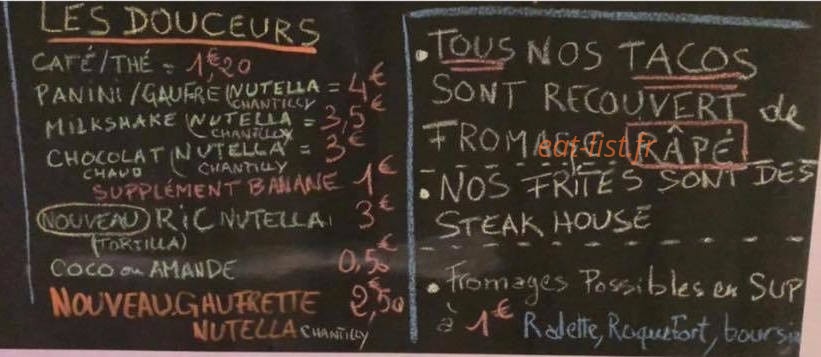 LES DOUCEURS
CAFÉ/THÉ = 1€,20
PANINI/GAUFRE (NUTELLA = 4€
CHANTILLY
MILKSHAKE (NUTELLA = 3,5€
CHANTILLY
CHOCOLAT (NUTELLA = 3€
CHAUD CHANTILLY
SUPPLÉMENT BANANE 1€
NOUVEAU RIC NUTELLA 3€
(TORTILLA)
COCO ou AMANDE 0,50€
NOUVEAU.GAUFRETTE 2,50
NUTELLA CHANTILLY
• TOUS NOS TACOS
SONT RECOUVERT de
FROMAGE RÂPÉ
eat-list.fr
• NOS FRITES SONT DES
STEAK HOUSE
• Fromages Possibles en SUP
à 1€ Ralette, Roquefort, boursin